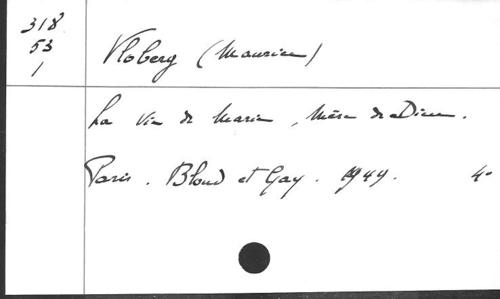 318
53
1
Vloberg (Maurice)
La Vie de Marie, Mère de Dieu.
Paris. Bloud et Gay. 1949. 4°